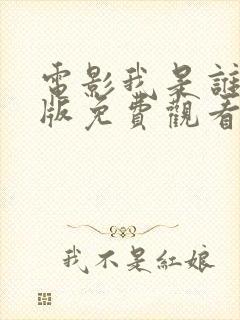 電影我是誰
版免費觀看
我不是紅娘